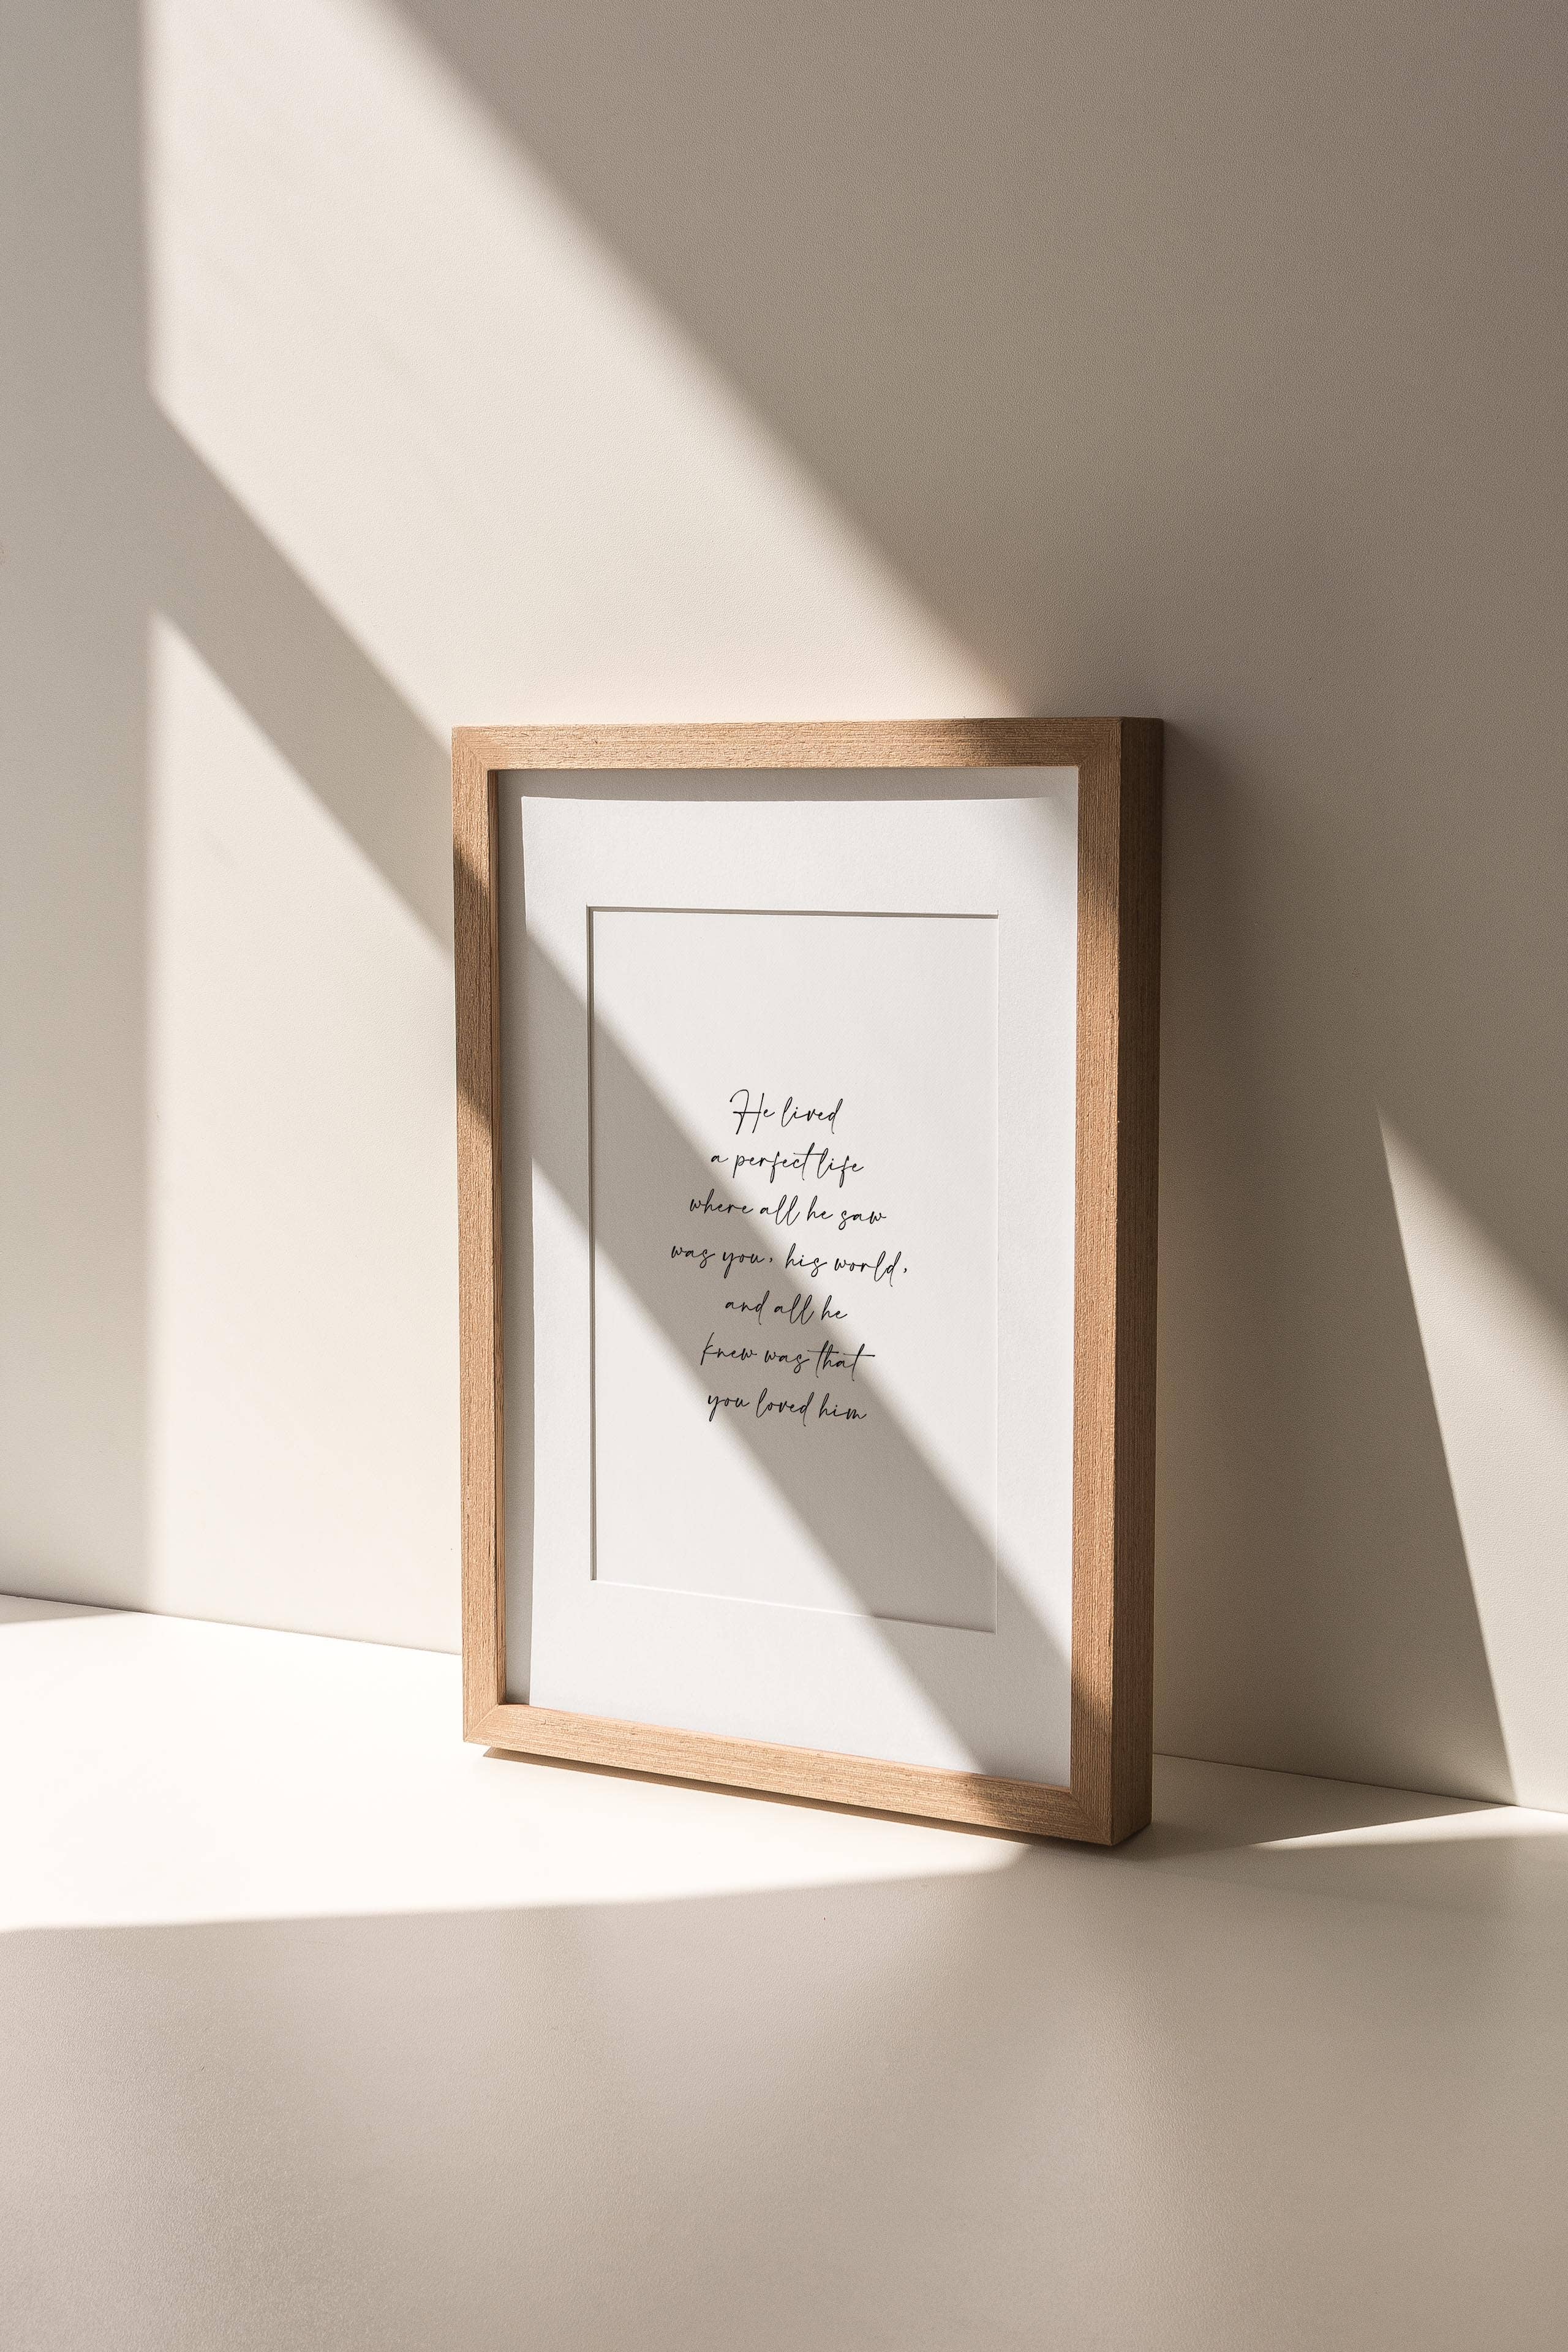 He lived
a perfect life
where all he saw
was you, his world,
and all he
knew was that
you loved him